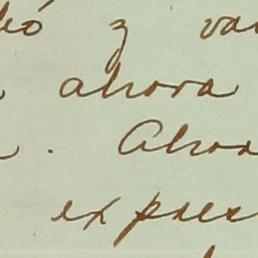 bó y va
ahora
. Ahora
expres